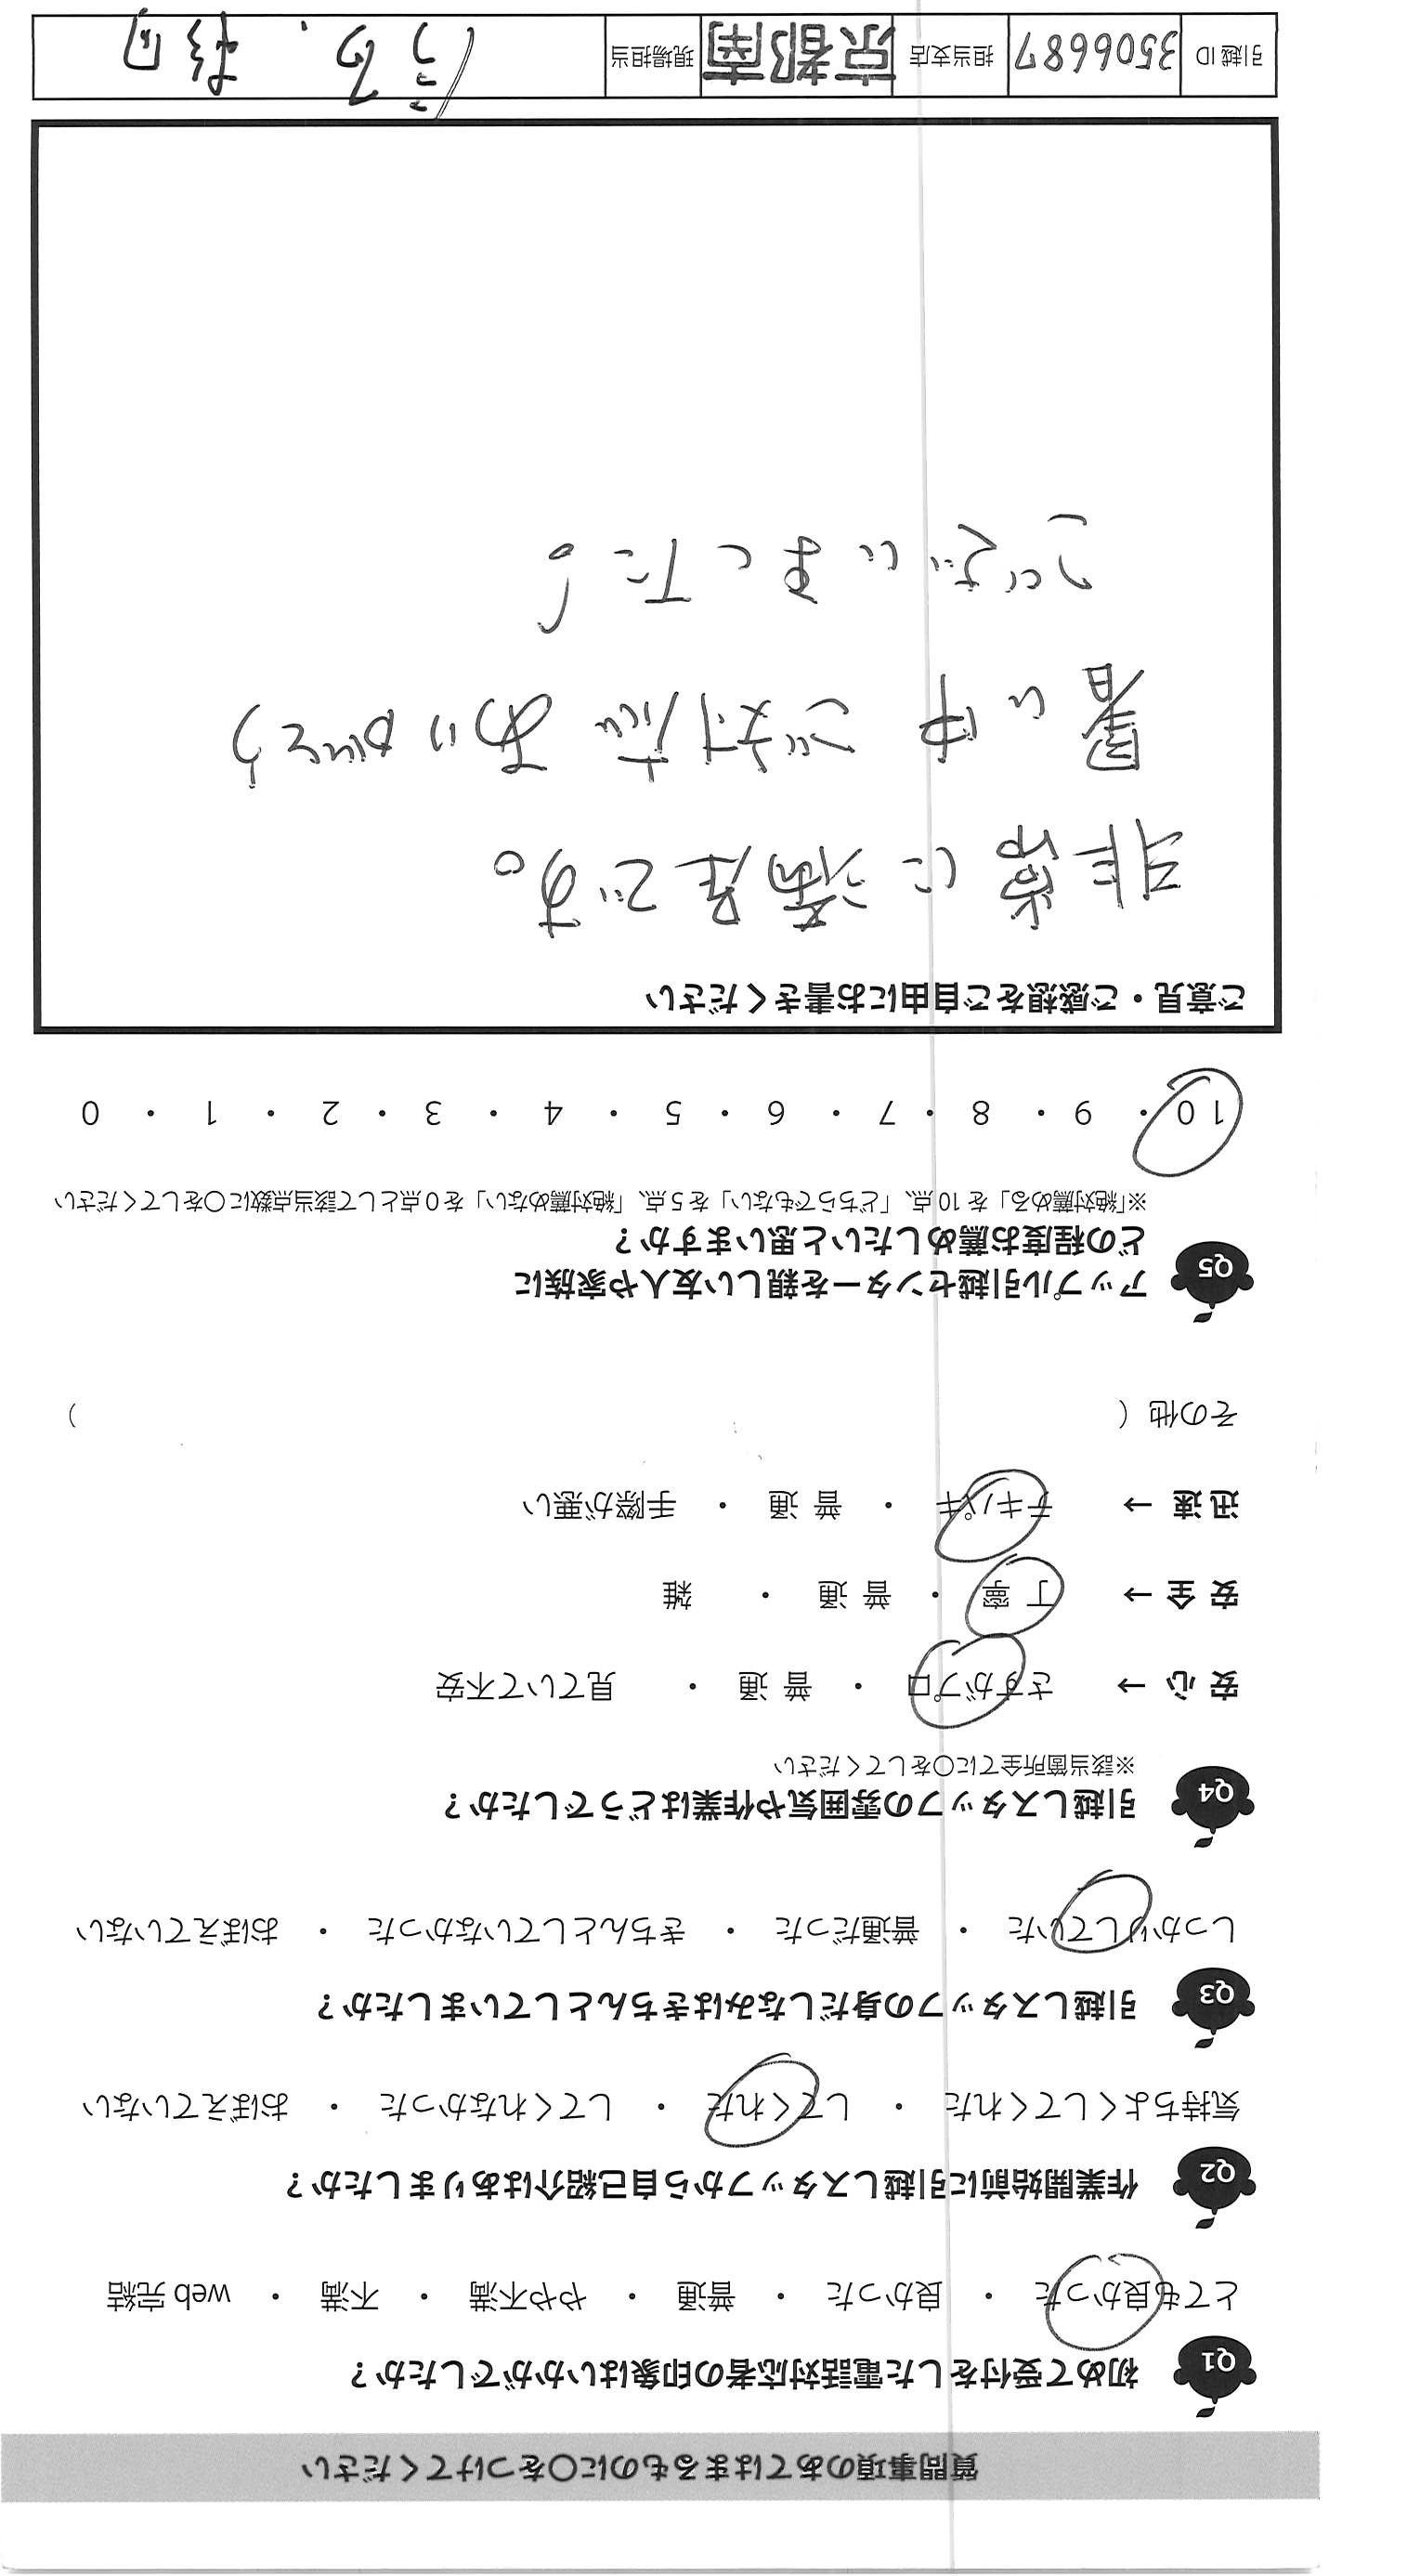 質問事項のあてはまるものに○をつけてください
Q1 初めて受付をした電話対応者の印象はいかがでしたか？
とても良かった ・ 良かった ・ 普通 ・ やや不満 ・ 不満 ・ web 完結
Q2 作業開始前に引越しスタッフから自己紹介はありましたか？
気持ちよくしてくれた ・ してくれた ・ してくれなかった ・ おぼえていない
Q3 引越しスタッフの身だしなみはきちんとしていましたか？
しっかりしていた ・ 普通だった ・ きちんとしていなかった ・ おぼえていない
Q4 引越しスタッフの雰囲気や作業はどうでしたか？
※該当箇所全てに○をしてください
安 心 → さすがプロ ・ 普 通 ・ 見ていて不安
安 全 → 丁 寧 ・ 普 通 ・ 雑
迅 速 → テキパキ ・ 普 通 ・ 手際が悪い
その他（ ）
Q5 アップル引越センターを親しい友人や家族に
どの程度お薦めしたいと思いますか？
※「絶対薦める」を 10 点、「どちらでもない」を 5 点、「絶対薦めない」を 0 点として該当点数に○をしてください
10 ・ 9 ・ 8 ・ 7 ・ 6 ・ 5 ・ 4 ・ 3 ・ 2 ・ 1 ・ 0
ご意見・ご感想をご自由にお書きください
非常に満足です。
暑い中ご対応ありがとう
ございました！
引越 ID 3506687 担当支店 京都南 現場担当